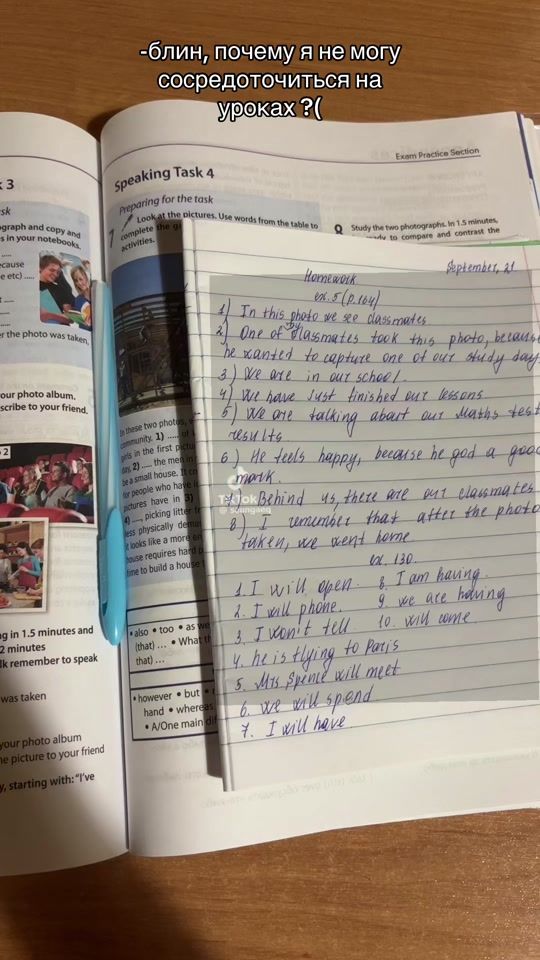 -блин, почему я не могу
сосредоточиться на
уроках ?(
3
Speaking Task 4
Exam Practice Section
Preparing for the task
7 Look at the pictures. Use words from the table to
complete the
activities.
8 Study the two photographs. In 1.5 minutes,
to compare and contrast the
graph and copy and
s in your notebooks.
etc) .....
er the photo was taken,
our photo album.
scribe to your friend.
2
In these two photos,
community. 1) .....
girls in the first
day, 2) ..... the men in
be a small house. It
for people who have
pictures have in 3)
4) ....., picking litter
less physically
it looks like a more
house requires hard
time to build a house
• also • too • as
(that) ... • What
that) ...
• however • but •
hand • whereas
• A/One main
ng in 1.5 minutes and
2 minutes
lk remember to speak
was taken
your photo album
e picture to your friend
y, starting with: "I've
September, 21
Homework
ex. 5 (p.104)
1) In this photo we see classmates
2) One of my classmates took this photo, because
he wanted to capture one of our study day
3) We are in our school.
4) We have just finished our lessons
5) We are talking about our Maths test
results
6) He feels happy, because he god a good
mark.
Behind us, there are our classmates
8) I remember that after the photo
taken, we went home
TikTok
ex. 130.
1. I will open. 8. I am having.
2. I will phone. 9. we are having
3. I won't tell 10. will come.
4. he is flying to Paris
5. Mrs Spence will meet
6. we will spend
7. I will have